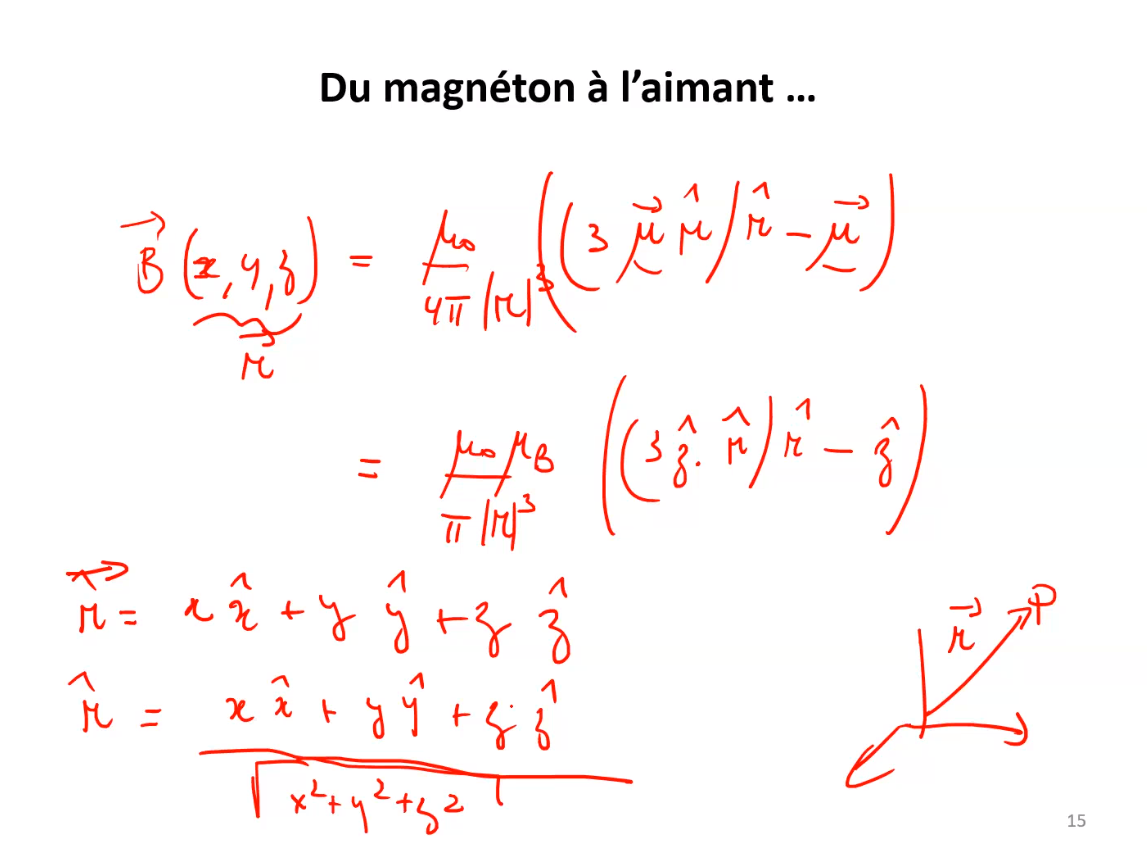 Du magnéton à l'aimant ...
B⃗ (x, y, z) = μ₀ / 4π |r|³ ((3 μ⃗ r̂) r̂ − μ⃗)
r⃗
= μ₀ μ_B / π |r|³ ((3 ẑ · r̂) r̂ − ẑ)
r⃗ = x x̂ + y ŷ + z ẑ
r⃗ P
r̂ = x x̂ + y ŷ + z ẑ / √(x² + y² + z²)
15